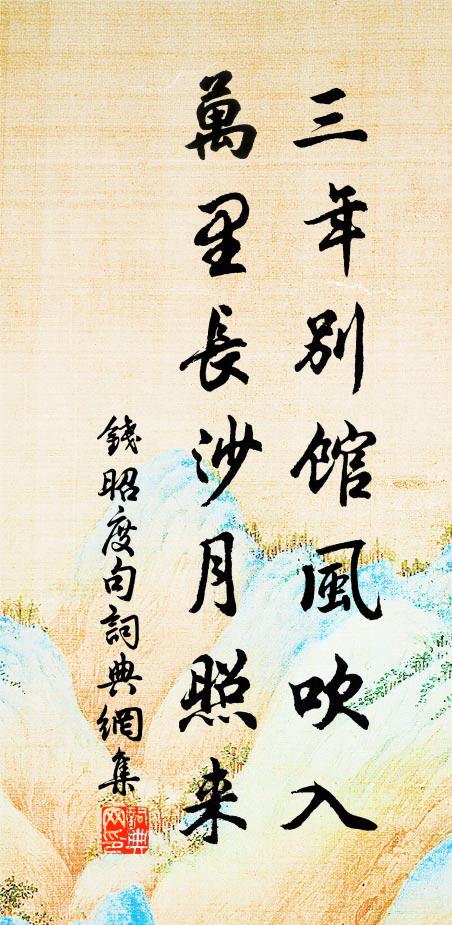 三年別館風吹入
萬里長沙月照来
錢昭度句詞典網集
詞典
网印